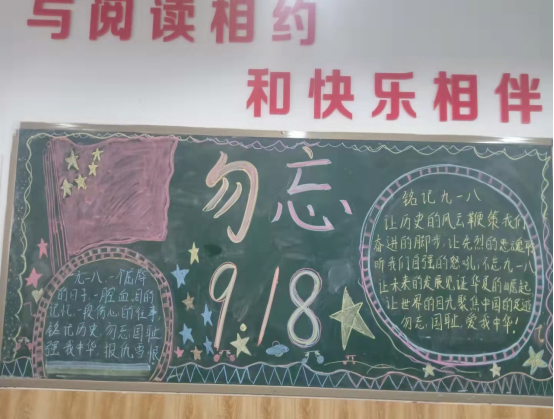 与阅读相约
和快乐相伴
勿忘
9.18
九一八,一个屈辱
的日子,一腔血泪的
记忆,一段伤心的往事,
铭记历史,勿忘国耻
强我中华,报仇雪恨
铭记九一八
让历史的风云鞭策我们
奋进的脚步,让先烈的忠魂聆
听我们自强的怒吼,不忘九一八
让未来的发展见证华夏的崛起
让世界的目光聚焦中国的发达
勿忘国耻,爱我中华!